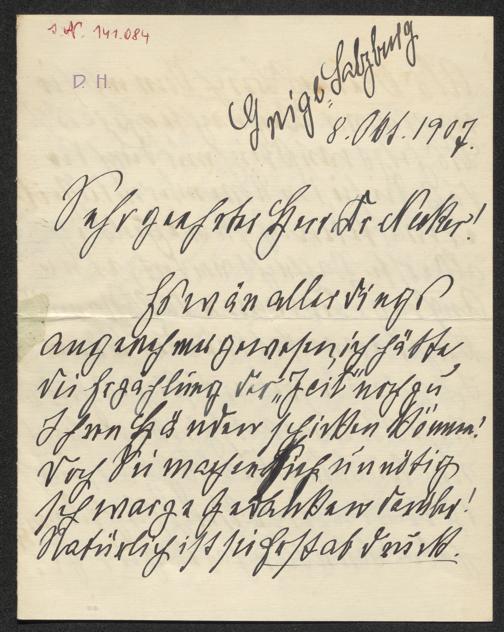 J.N. 141.084
D. H.
Gnigl, Salzburg
8. Okt. 1907.
Sehr geehrter Herr Dr. Necker!
Es wär allerdings
angenehmer gewesen, ich hätte
die Erzählung der „Zeit" noch zu
Ihren Händen schicken können!
Doch Sie machen sich unnötig
schwarze Gedanken darüber!
Natürlich ist sie Erstabdruck.